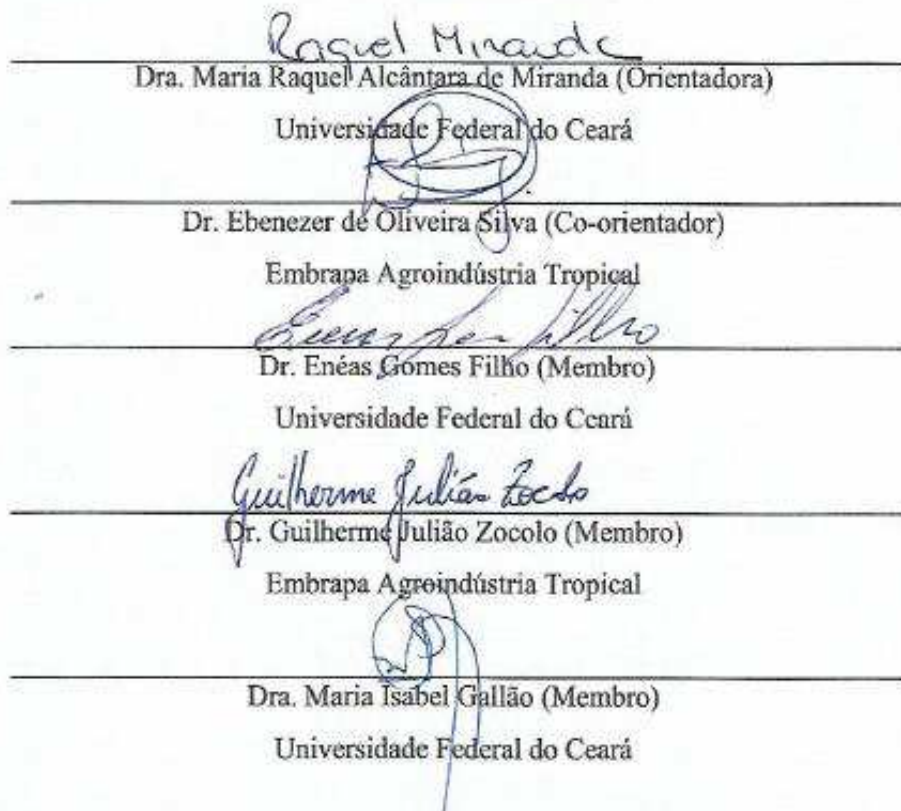 Raquel Miranda
Dra. Maria Raquel Alcântara de Miranda (Orientadora)
Universidade Federal do Ceará
Dr. Ebenezer de Oliveira Silva (Co-orientador)
Embrapa Agroindústria Tropical
Filho
Dr. Enéas Gomes Filho (Membro)
Universidade Federal do Ceará
Guilherme Julião Zocolo
Dr. Guilherme Julião Zocolo (Membro)
Embrapa Agroindústria Tropical
Dra. Maria Isabel Gallão (Membro)
Universidade Federal do Ceará